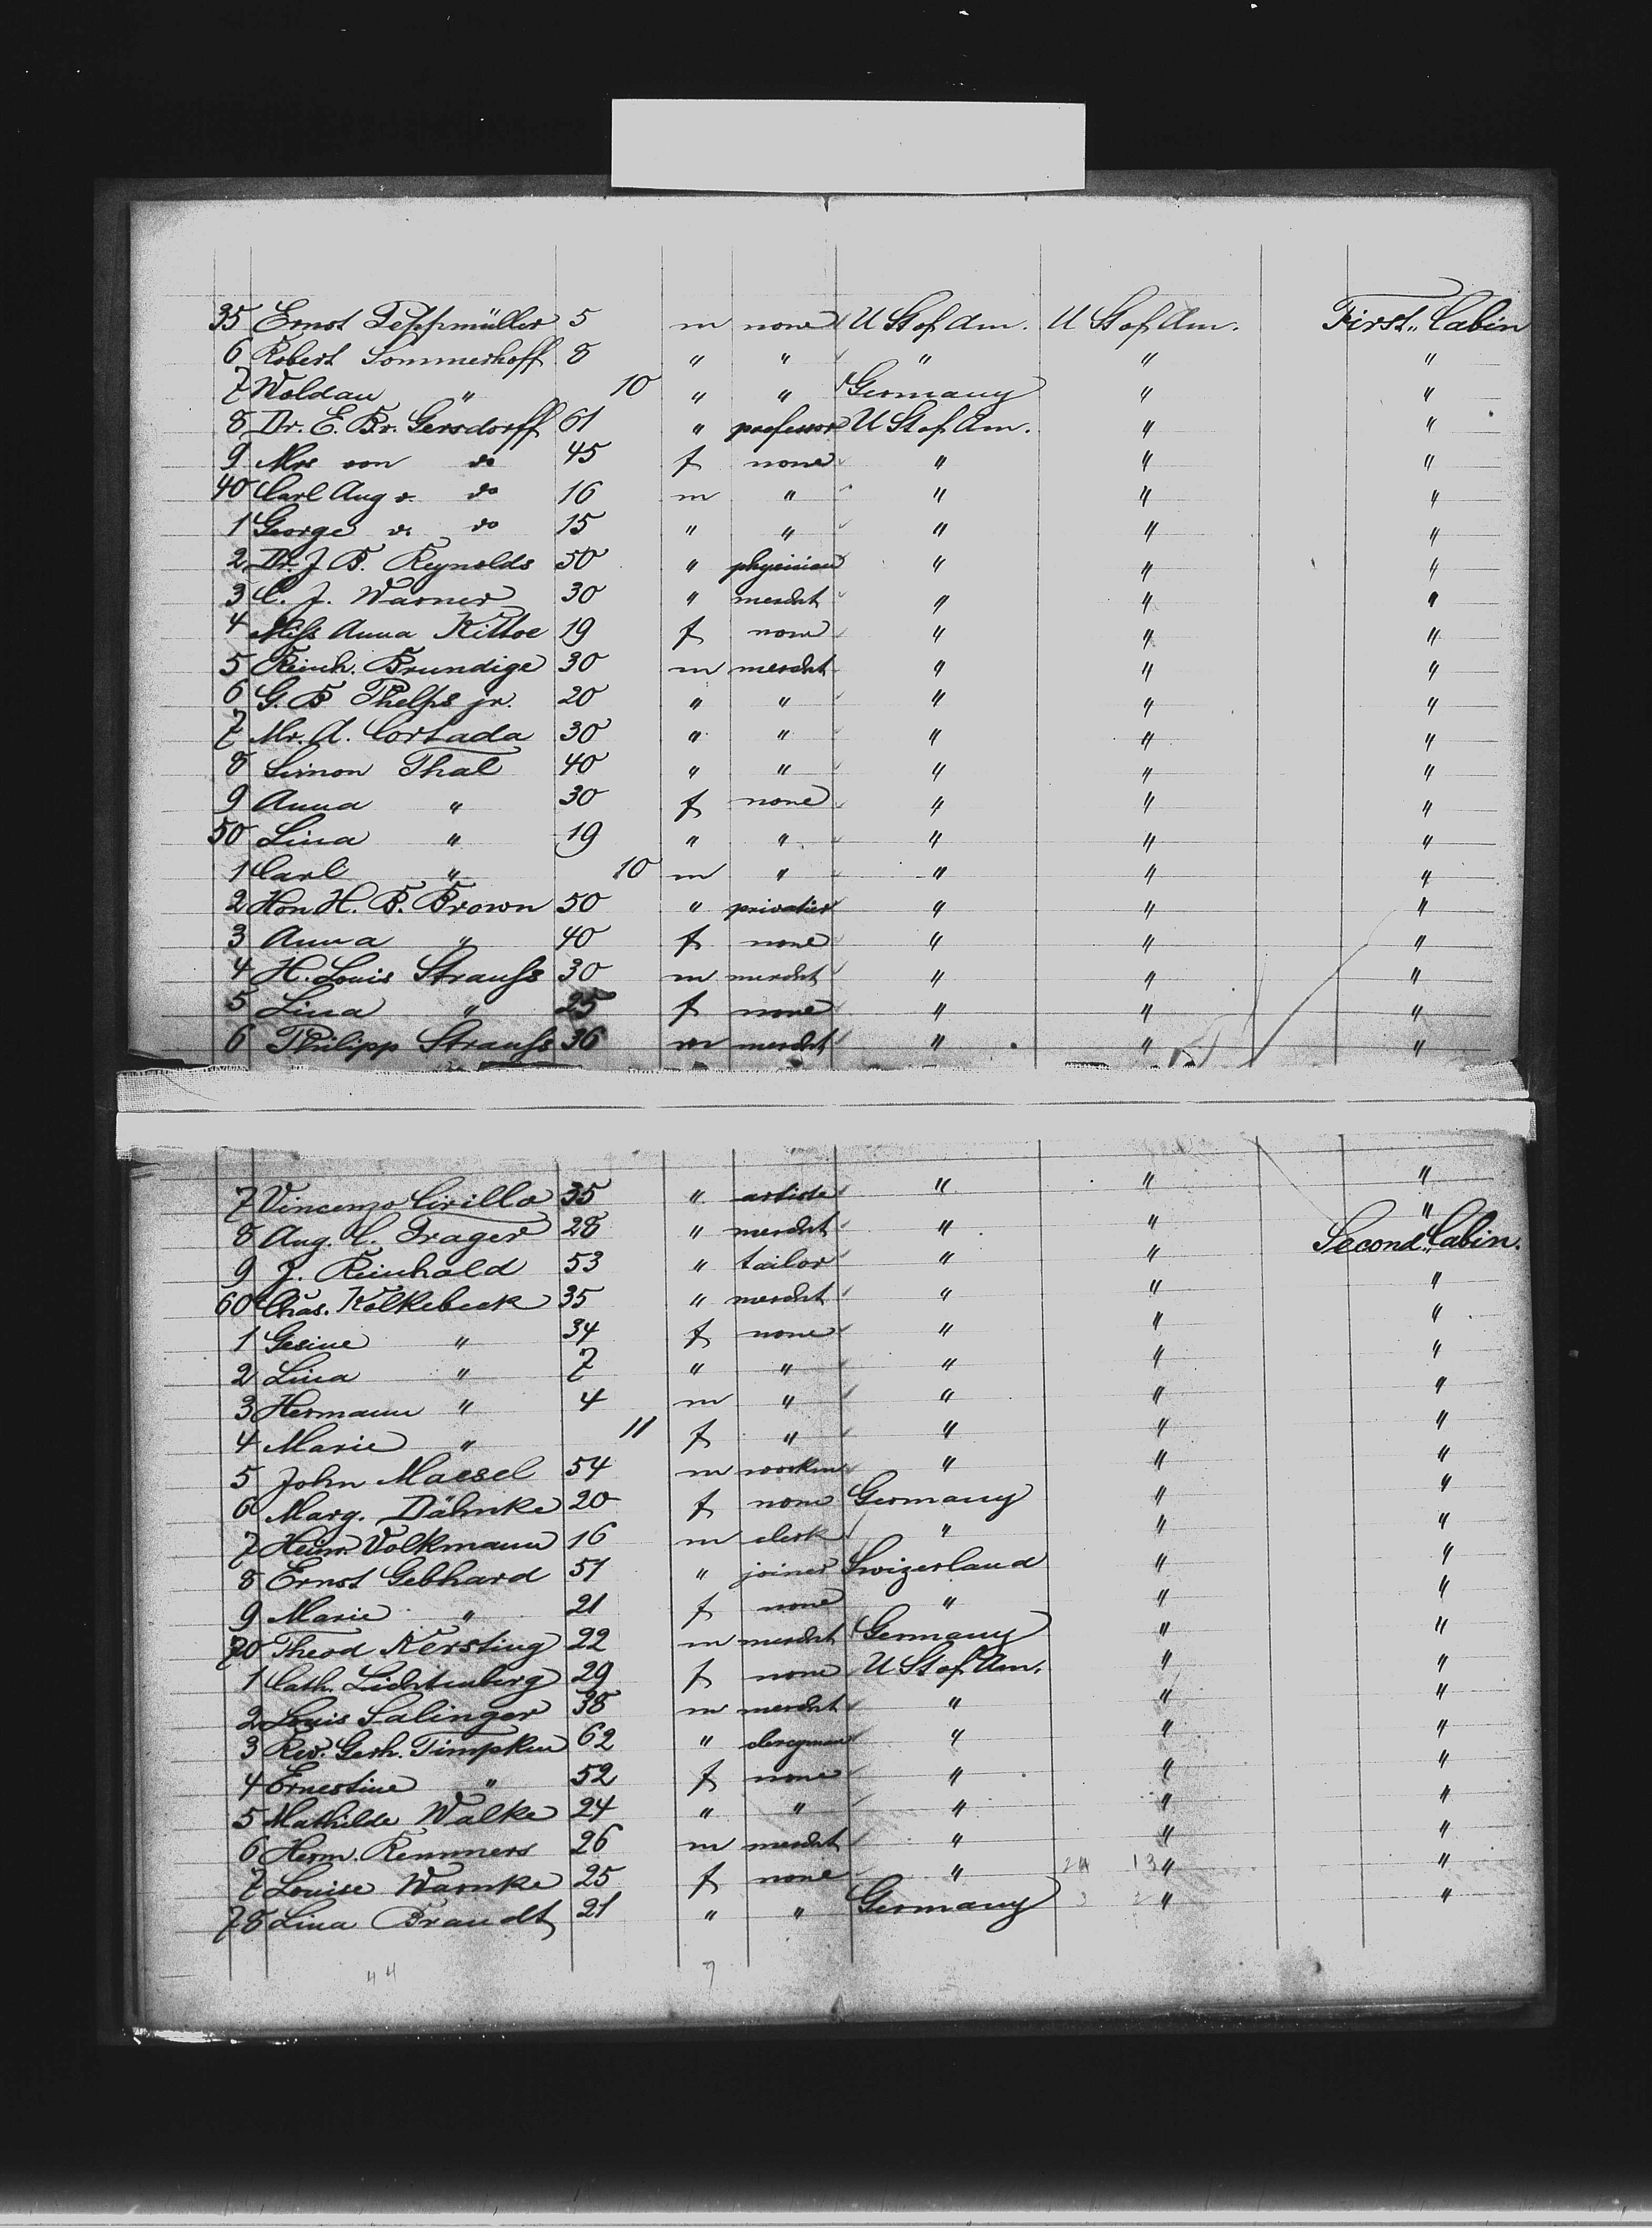 35 Ernst Peppmüller 5 m none U St of Am. U St of Am. First. Cabin
6 Robert Sommerhoff 8 " " " " "
7 Woldau " 10 " " Germany " "
8 Dr. E. B. v. Gersdorff 61 " professor U St of Am. " "
9 Mrs von do 45 f none " " "
40 Carl Aug v. do 16 m " " " "
1 George v. do 15 " " " " "
2 Dr. J. B. Reynolds 50 " physician " " "
3 C. J. Warner 30 " mercht " " "
4 Miss Anna Kittoe 19 f none " " "
5 Reinh. Brundige 30 m mercht " " "
6 G. B Phelps jr. 20 " " " " "
7 Mr. A. Cortada 30 " " " " "
8 Simon Thal 40 " " " " "
9 Anna " 30 f none " " "
50 Lina " 19 " " " " "
1 Carl " 10 m " " " "
2 Hon H. B. Brown 50 " privatier " " "
3 Anna " 40 f none " " "
4 H. Louis Strauss 30 m mercht " " "
5 Lina " 25 f none " " "
6 Philipp Strauss 36 m mercht " " "
7 Vincenzo Cirillo 35 " artiste " " "
8 Aug. C. Trager 28 " mercht " " "
9 J. Reinhold 53 " tailor " " Second. Cabin.
60 Chas. Kolkebeck 35 " mercht " " "
1 Gesine " 34 f none " " "
2 Lina " 7 " " " " "
3 Hermann " 4 m " " " "
4 Marie " 11 f " " " "
5 John Maesel 54 m workm " " "
6 Marg. Dähnke 20 f none Germany " "
7 Heinr. Volkmann 16 m clerk " " "
8 Ernst Gebhard 51 " joiner Swizerland " "
9 Marie " 21 f none " " "
70 Theod Kersting 22 m mercht Germany " "
1 Cath. Lichtenberg 29 f none U St of Am. " "
2 Louis Salinger 38 m mercht " " "
3 Rev. Gerh. Timpken 62 " clergyman " " "
4 Ernestine " 52 f none " " "
5 Mathilde Walke 24 " " " " "
6 Herm. Remmers 26 m mercht " " "
7 Louise Warnke 25 f none " 13 " "
78 Lina Brandt 21 " " Germany 3 2 " "
44 7